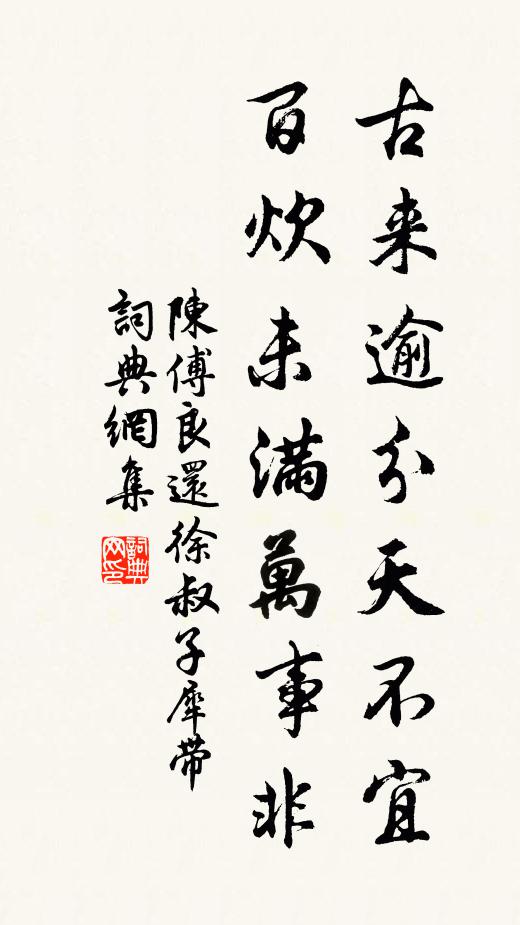 古来逾分天不宜
百炊未滿萬事非
陳傅良還徐叔子犀帶
詞典網集
詞典網印